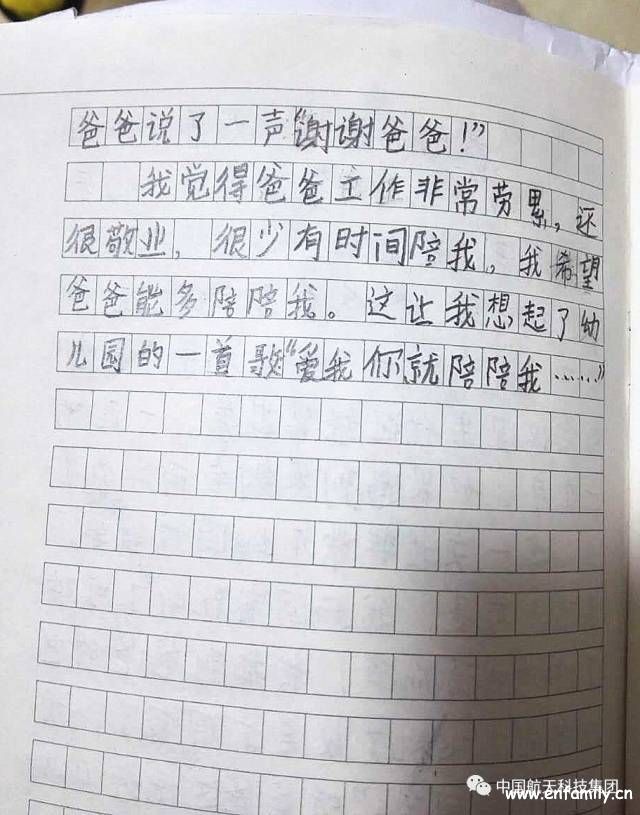 爸爸说了一声“谢谢爸爸！”
我觉得爸爸工作非常劳累，还
很敬业，很少有时间陪我，我希望
爸爸能多陪陪我。这让我想起了幼
儿园的一首歌“爱我你就陪陪我……”
中国航天科技集团
www.enfamily.cn